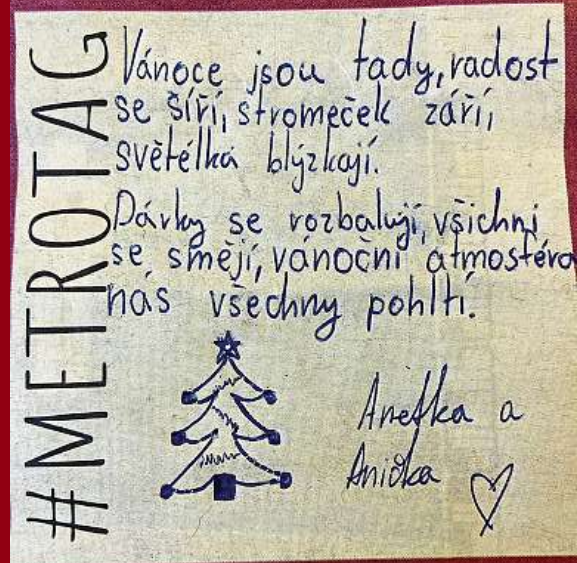 #METROTAG
Vánoce jsou tady, radost
se šíří, stromeček září,
světélka blýzkají.
Dárky se rozbalují, všichni
se smějí, vánoční atmosféra
nás všechny pohltí.
Anetka a
Anička